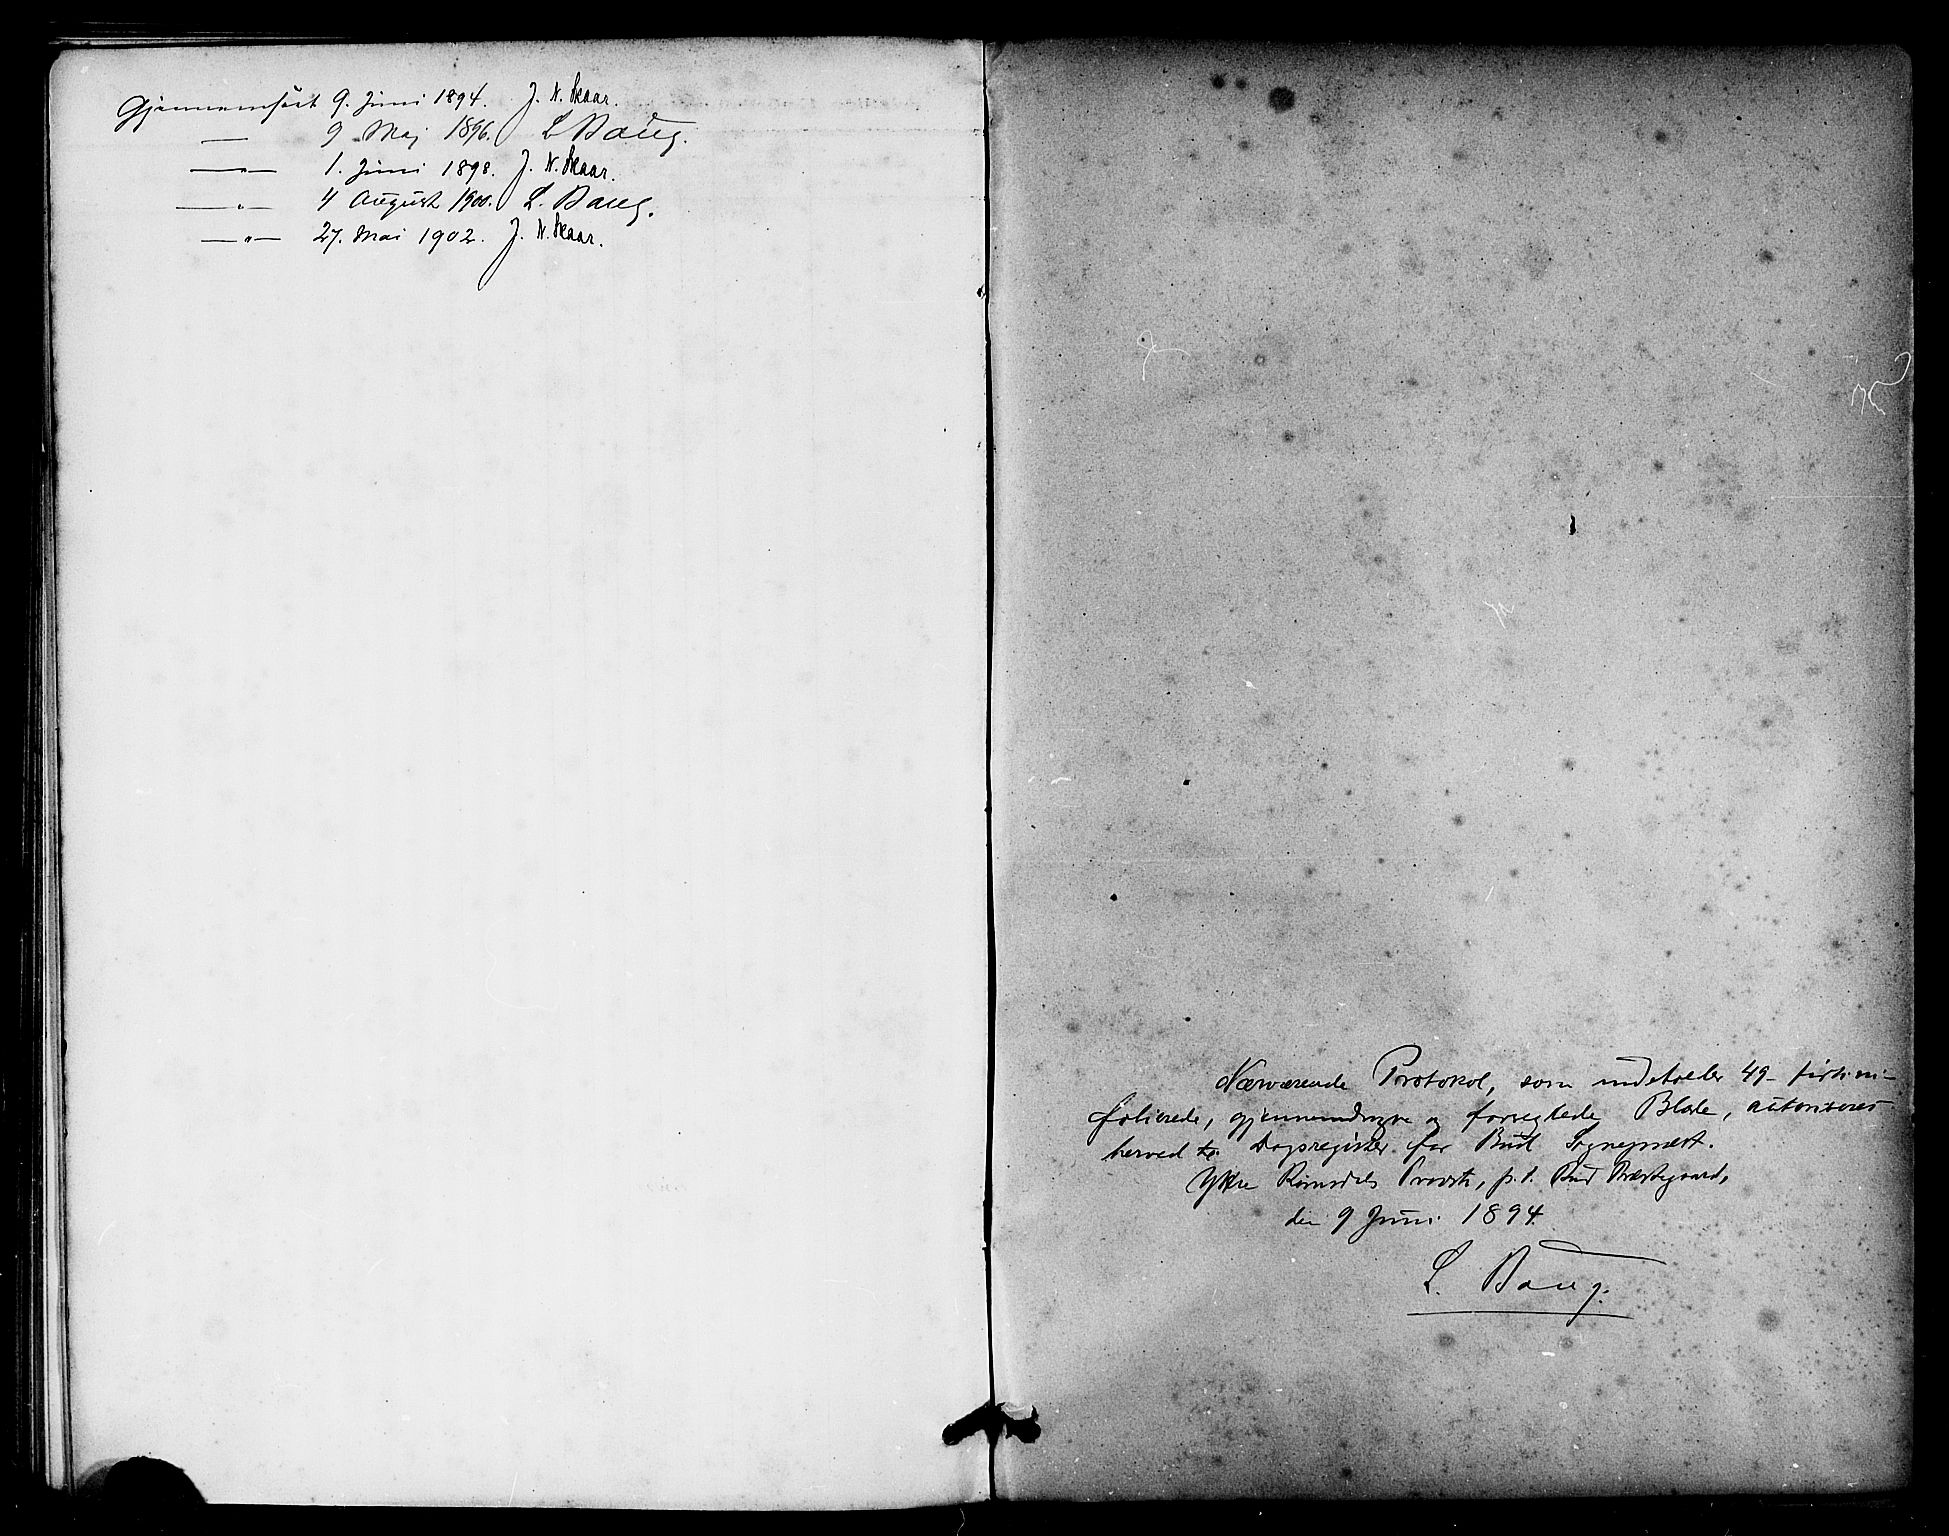 Gjennemséet 9. Juni 1894. J. N. Skaar.
— 9 Maj 1896. L Daug.
—"— 1. Juni 1898. J. N. Skaar.
—"— 4 August 1900. L. Daug.
—"— 27. Mai 1902. J. N. Skaar.
Nærværende Protokol, som indeholder 49- firti ni-
folierede, gjennemdragne og forseglede Blade, autoriseres
herved til Dagsregister for Bud Sognepræst.
Ytre Romsdals Provsti, p. t. Bud Præstegaard,
den 9 Juni 1894
L. Daug.